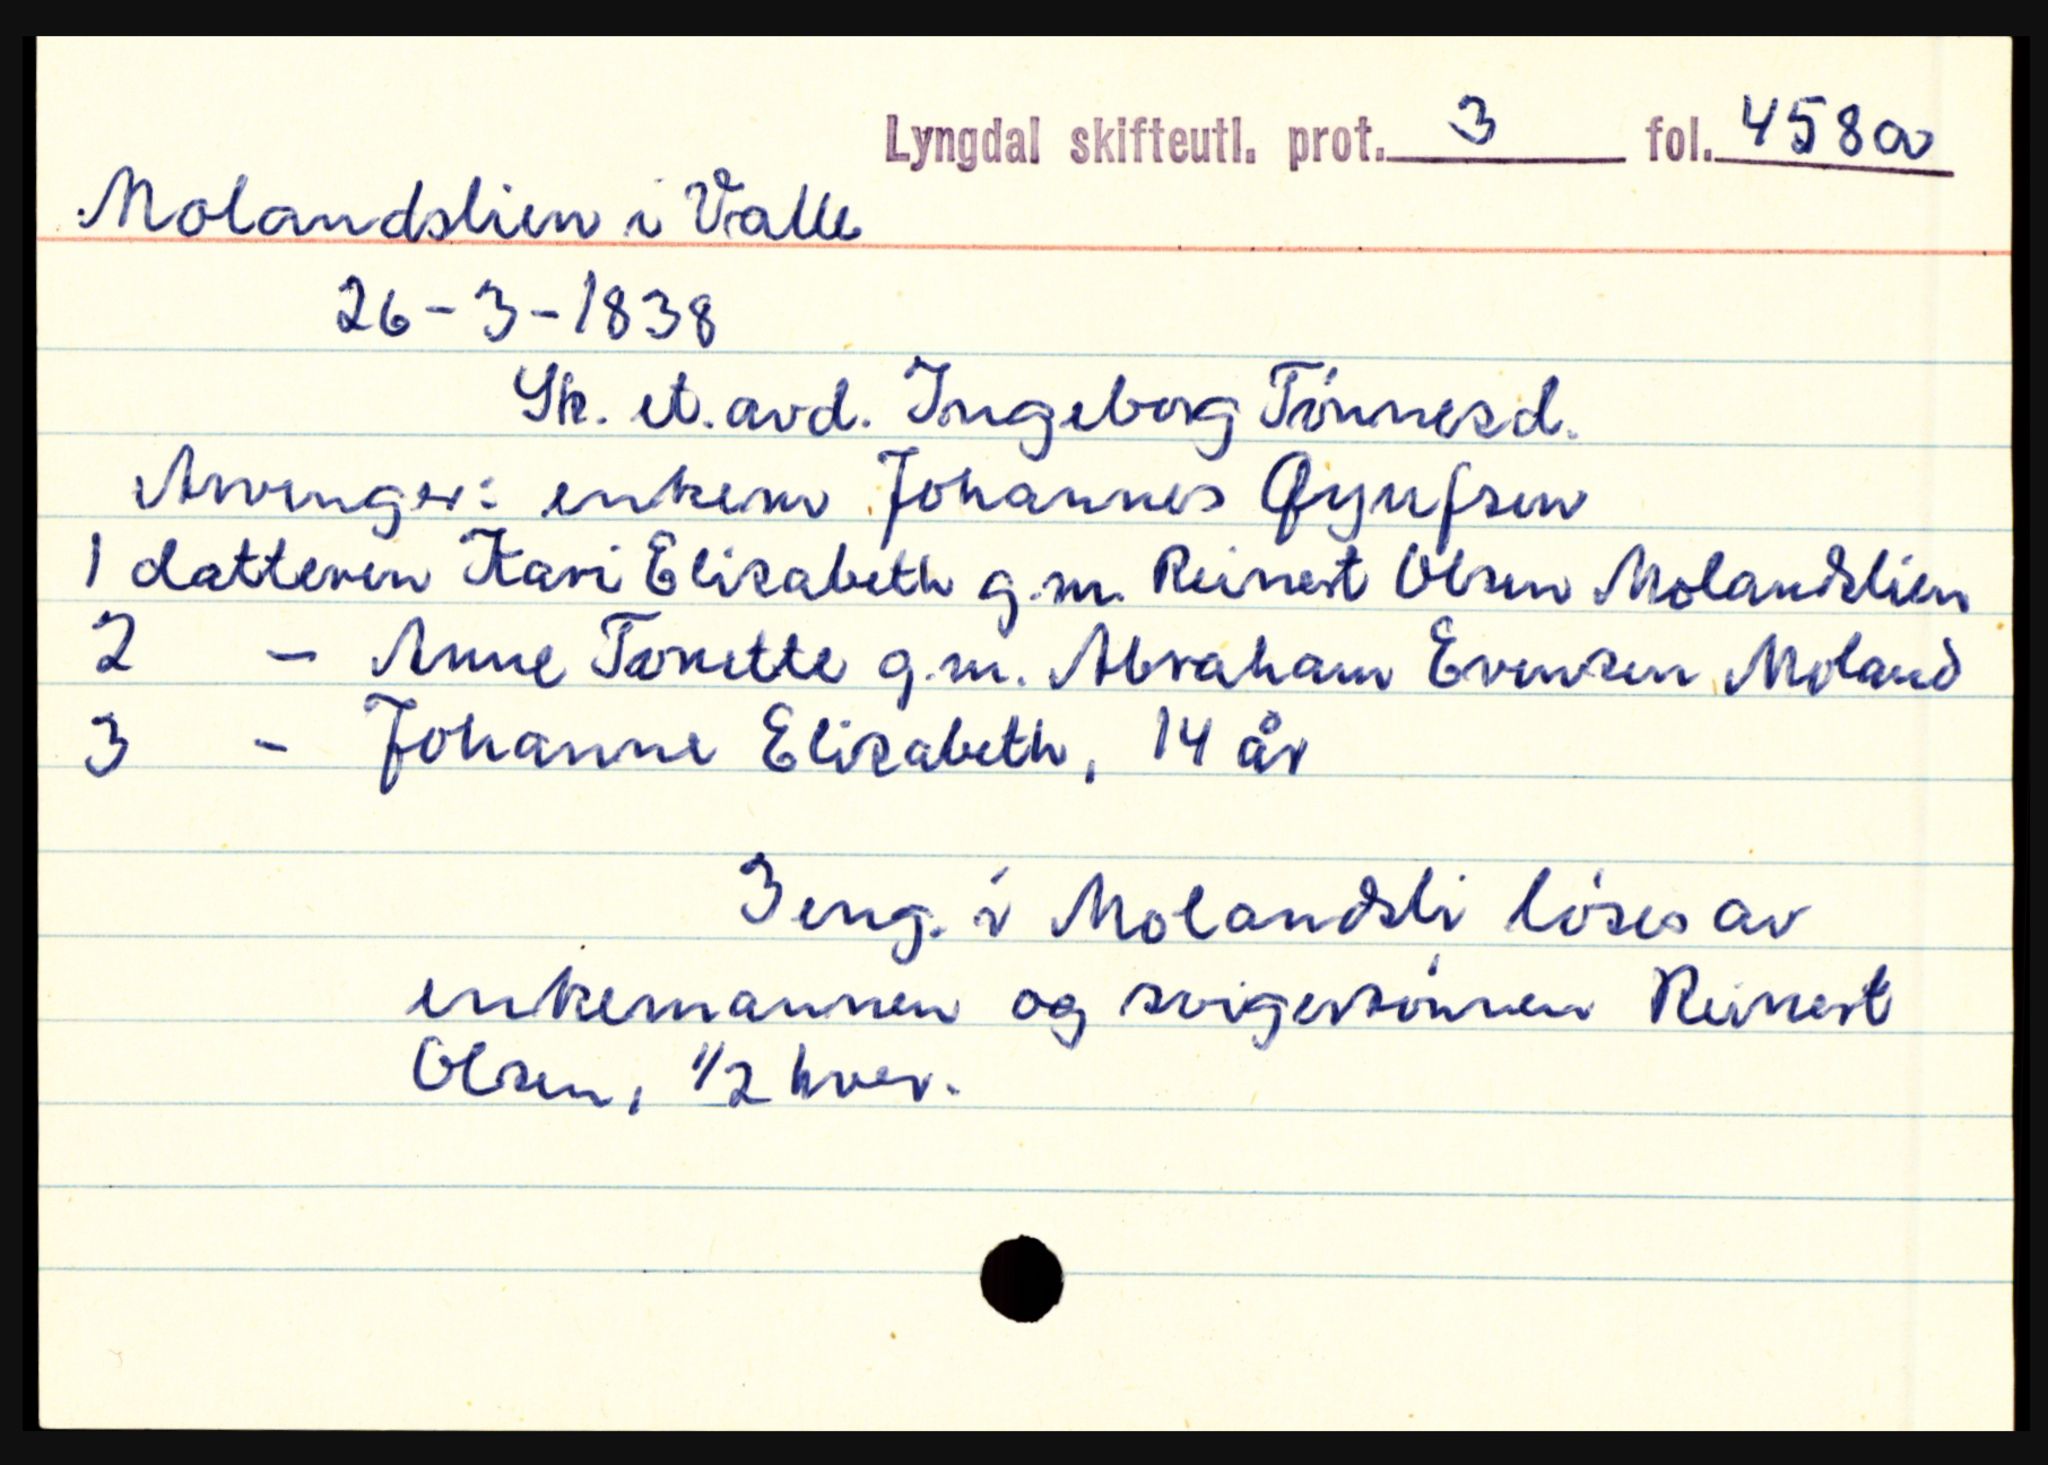 Lyngdal skifteutl. prot. 3 fol. 458a
Molandslien i Valle
26-3-1838
Sk. et. avd. Ingeborg Tónnesd.
Arvinger: enkem Johannes Øyufsen
1 datteren Kari Elisabeth g.m. Reinert Olsen Molandslien
2 - Anne Tonette g.m. Abraham Evensen Moland
3 - Johanne Elisabeth, 14 år
3 eng. i Molandsli lóses av
enkemannen og svigersónnen Reinert
Olsen, 1/2 hver.